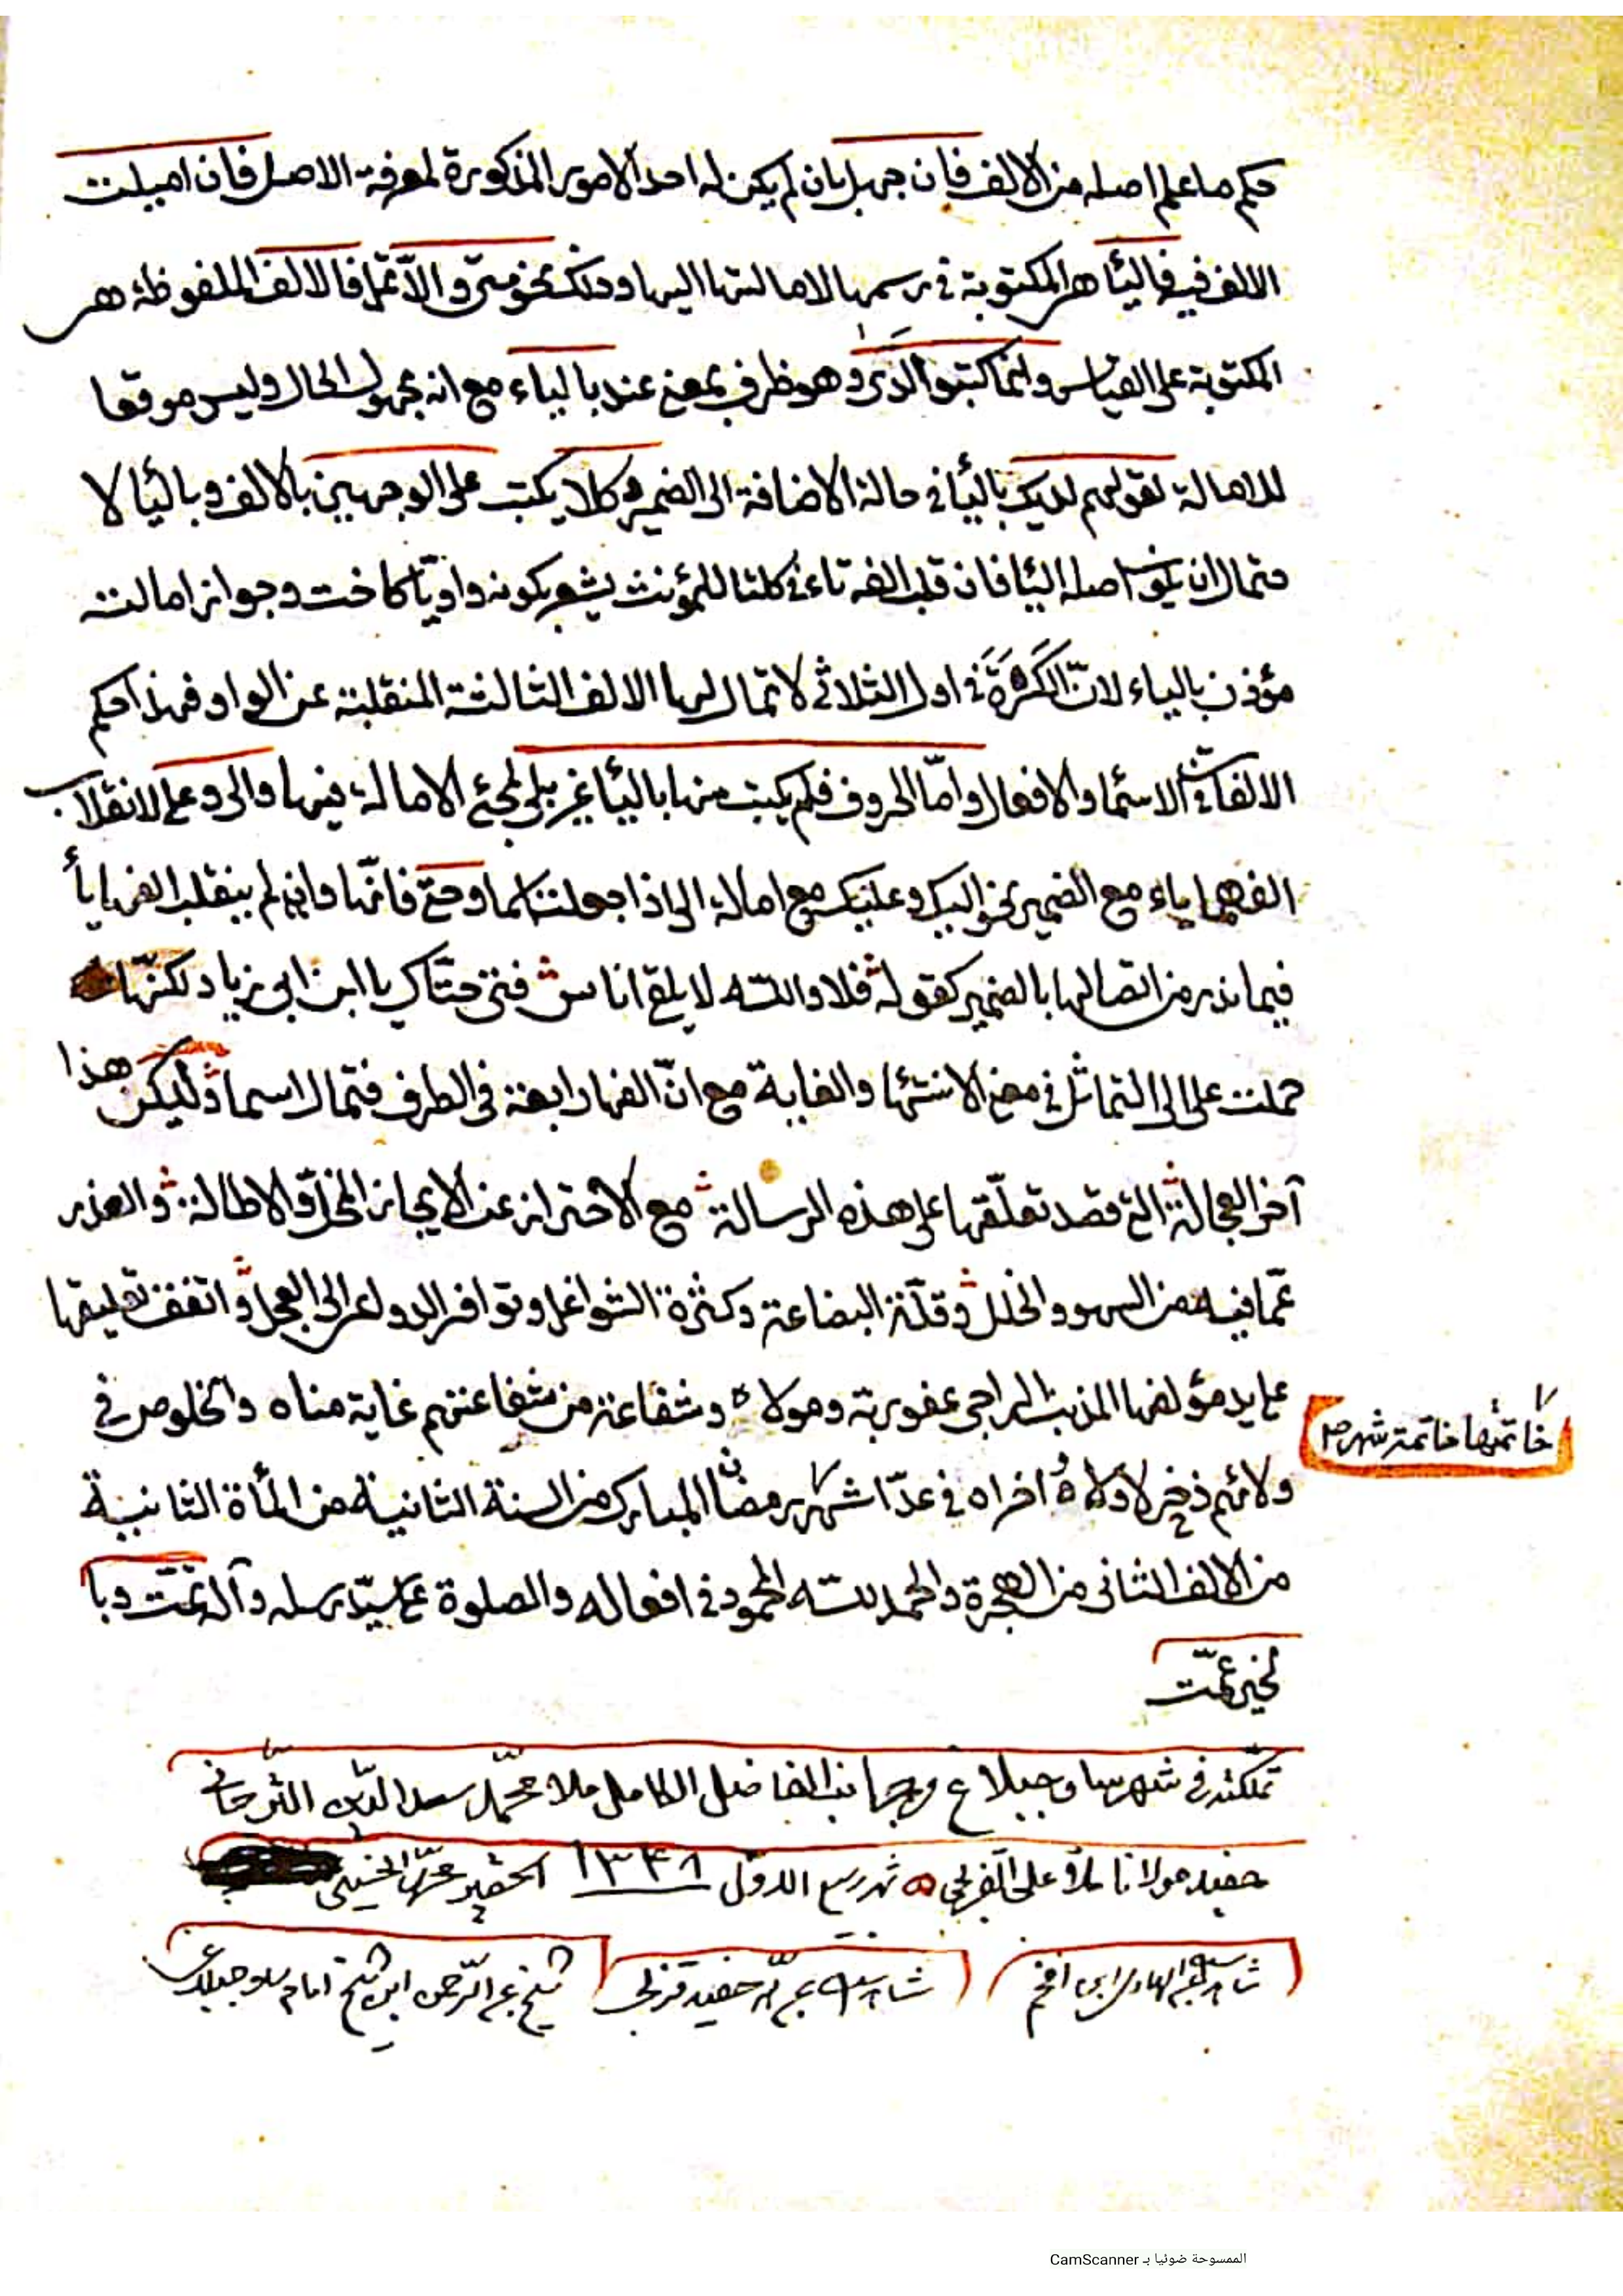 حكم ما علم اصله من الالف فان جهل بان لم يكن له احد الامور المذكورة لمعرفة الاصل فان اميلت
الالف فيه فاليأ هى المكتوبة فى رسمها لامالتها اليها وذلك نحو متى والاّ تمل فالالف الملفوظة هى
المكتوبة على القياس وانما كتبوا لَدَى وهو ظرف بمعنى عند بالياء مع انه مجهول الحال وليس موقعا
للامالة لقولهم لديك باليأ فى حالة الاضافة الى الضمير وكلا يكتب على الوجهين بالالف وباليأ لا
حتمال ان يكون اصله اليأ فان قلب الفه تاء فى كلتا للمؤنث يشعر بكونه واويّا كاخت وجواز امالته
مؤذن بالياء لانّ الكَسْرَةَ فى اول الثلاثى لا تمال لها الالف الثالثة المنقلبة عن الواو فهذا حكم
الالفات فى الاسمأ والافعال وامّا الحروف فلم يكتب منها باليأ غير بلى لمجئ الامالة فيها والى وعلى لانقلاب
الفهما ياء مع الضمير نحو اليك وعليك مع امالة الى اذا جعلت اسما وحتى فانّها وان لم ينقلب الفها يأ
فيما ندر من اتصالها بالضمير كقوله فلا والله لا يلقى اناس فتى حتّاك يا ابن ابى زياد لكنّها
حملت على الى للتماثل فى معنى الانتهأ والغاية مع انّ الفها رابعة فى الطرف فتمال اسما وليكن هذا
آخر العجالة التى قصد تعلّقها على هذه الرسالة مع الاحتراز عن الايجاز المخلّ والاطالة والعذر
عمّا فيه من السهو والخلل وقلّة البضاعة وكثرة الشواغل وتوافر الدواعى الى العجل واتفق تعليقها
على يد مؤلفها المذنب الراجى عفو ربه ومولاه وشفاعة من شفاعتهم غاية مناه والخلوص فى
خاتمتها خاتمة شهر
ولائهم ذخر لاولاه اخراه فى شهر رمضان المبارك من السنة الثانية من المأة الثانية
من الالف الثانى من الهجرة والحمد لله المحمود فى افعاله والصلوة على سيّد رسله وآله تمّت وبا
لخير عمّت
تملكته فى شهر ساوجبلاغ من جانب الفاضل الكامل ملا محمّد سعد الدّين
حفيد مولانا ملا على القزلجى شهر ربيع الاول ١٣٤٨ الحقير الحسينى
حفيد قزلجى
شيخ عبد الرّحمن ابن شيخ امام ساوجبلاغى
الممسوحة ضوئيا بـ CamScanner